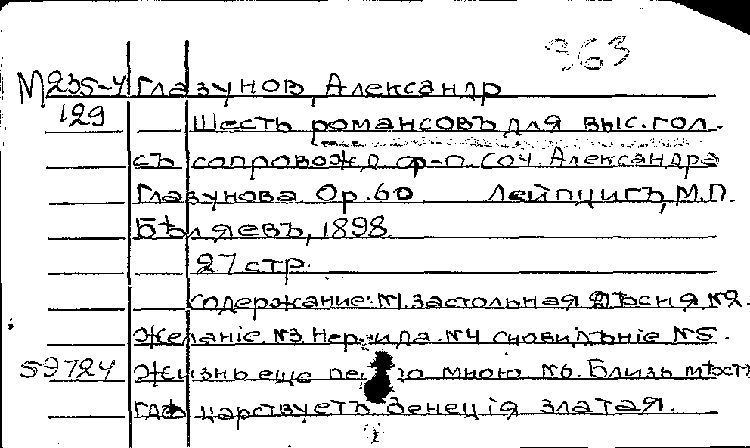 363
М235-4 Глазунов, Александр
129 Шесть романсовъ для выс. гол.
съ сопровожд. ф-п. Соч. Александра
Глазунова Op. 60 Лейпцигъ, М.П.
Бѣляевъ, 1898
27 стр.
содержание: №1. Застольная пѣсня №2.
Желанiе. №3. Нереида. №4 сновидѣнiе №5.
59724 Жизнь еще мною №6. Близь мѣстъ
гдѣ царствуетъ Венецiя златая.